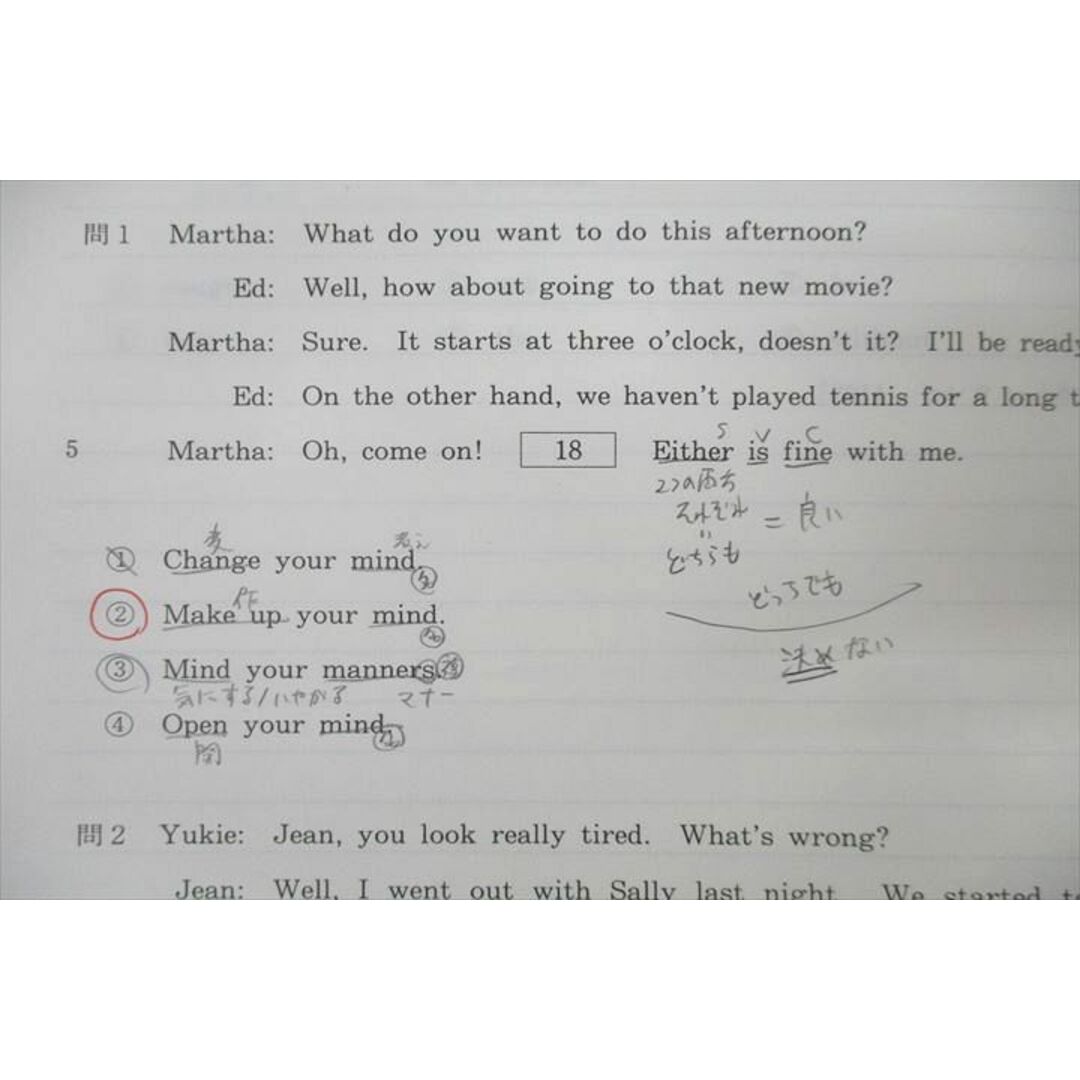 問1 Martha: What do you want to do this afternoon?
Ed: Well, how about going to that new movie?
Martha: Sure. It starts at three o'clock, doesn't it? I'll be ready
Ed: On the other hand, we haven't played tennis for a long t
S V C
5 Martha: Oh, come on! 18 Either is fine with me.
2つの両方
それぞれ = 良い
どちらも
どっちでも
決めない
変 考え
① Change your mind.
作
② Make up your mind.
③ Mind your manners.
気にする/いやがる マナー
④ Open your mind.
開
問2 Yukie: Jean, you look really tired. What's wrong?
Jean: Well, I went out with Sally last night. We started t